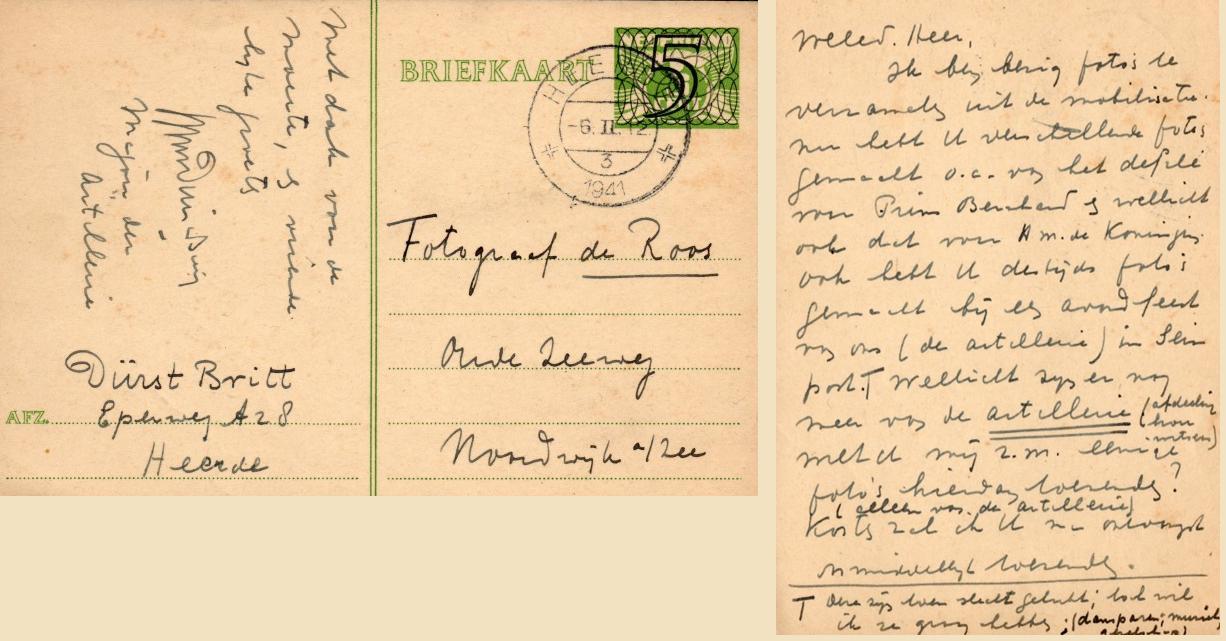 BRIEFKAART
5
HEERDE
-6.II.12
3
1941
Fotograaf de Roos
Oude Zeeweg
Noordwijk a/Zee
Met dank voor de
moeite, en vriende
lijke groeten
Majoor der
Artillerie
Dürst Britt
AFZ. Eperweg A28
Heerde
Weled. Heer,
Ik ben bezig foto's te
verzamelen uit de mobilisatie.
nu hebt U verschillende foto's
gemaakt o.a. van het defilé
voor Prins Bernhard en wellicht
ook dat voor H.M. de Koningin.
ook hebt U destijds foto's
gemaakt bij een avondfeest
van ons (de artillerie) in Sein
post.T Wellicht zijn er nog
meer van de artillerie (afdeeling
hou
witsers)
Wilt U mij z.m. eenige
foto's hiervan toezenden?
(alleen van de artillerie)
Kosten zal ik U na ontvangst
onmiddellijk toezenden.
T Deze zijn toen slecht gelukt; toch wil
ik ze graag hebben; (dansparen; muziek